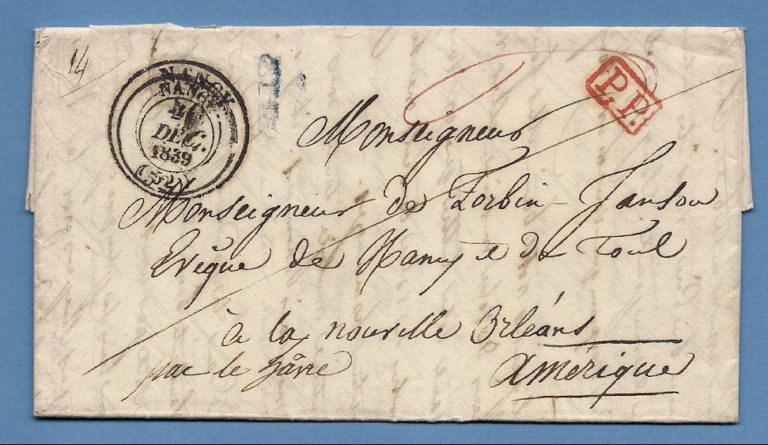 14
NANCY
NANCY
DEC.
1839
(52)
P.P.
Monseigneur
Monseigneur de Forbin-Janson
Evêque de Nancy et de Toul
à la nouvelle Orléans
par le hâvre
amérique